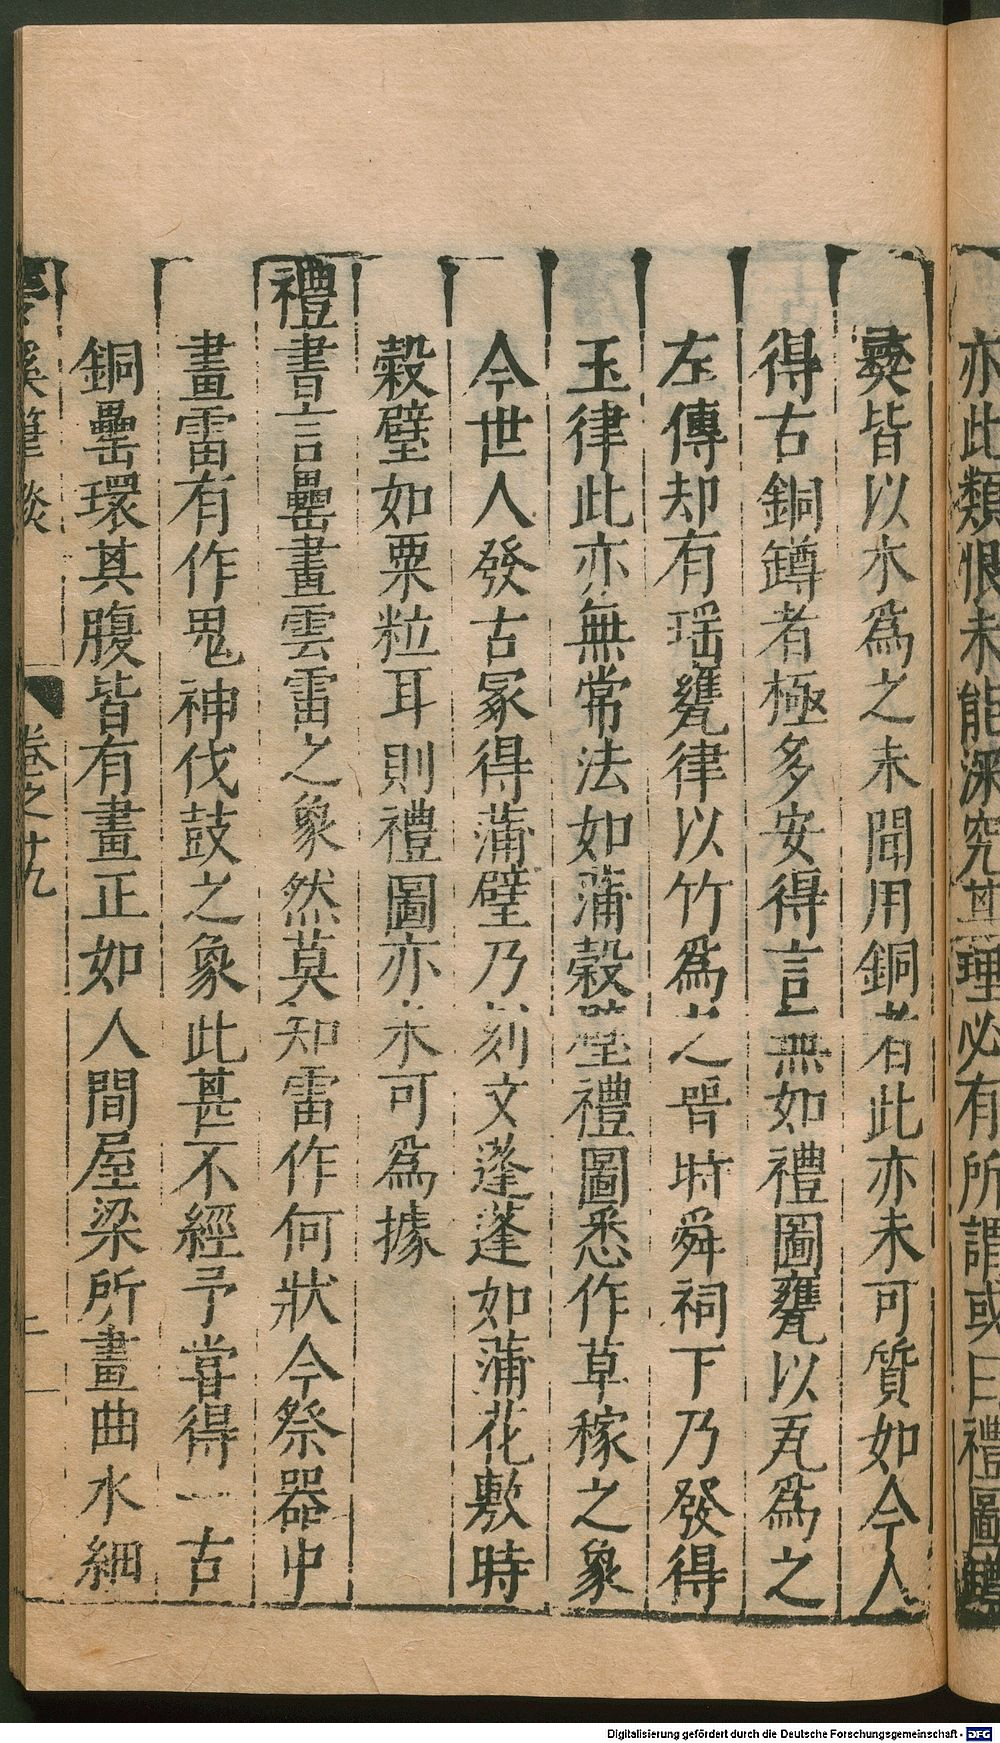 亦此類恨未能深究其理必有所謂或曰禮圖罇
彝皆以木爲之未聞用銅者此亦未可質如今人
得古銅罇者極多安得言無如禮圖甕以瓦爲之
左傳却有瑶甕律以竹爲之晉時舜祠下乃發得
玉律此亦無常法如蒲穀璧禮圖悉作草稼之象
今世人發古冢得蒲璧乃刻文蓬蓬如蒲花敷時
穀璧如粟粒耳則禮圖亦未可爲據
禮書言罍畫雲雷之象然莫知雷作何狀今祭器中
畫雷有作鬼神伐鼓之象此甚不經予嘗得一古
銅罍環其腹皆有畫正如人間屋梁所畫曲水細
夢溪筆談 卷之十九 二
Digitalisierung gefördert durch die Deutsche Forschungsgemeinschaft - DFG